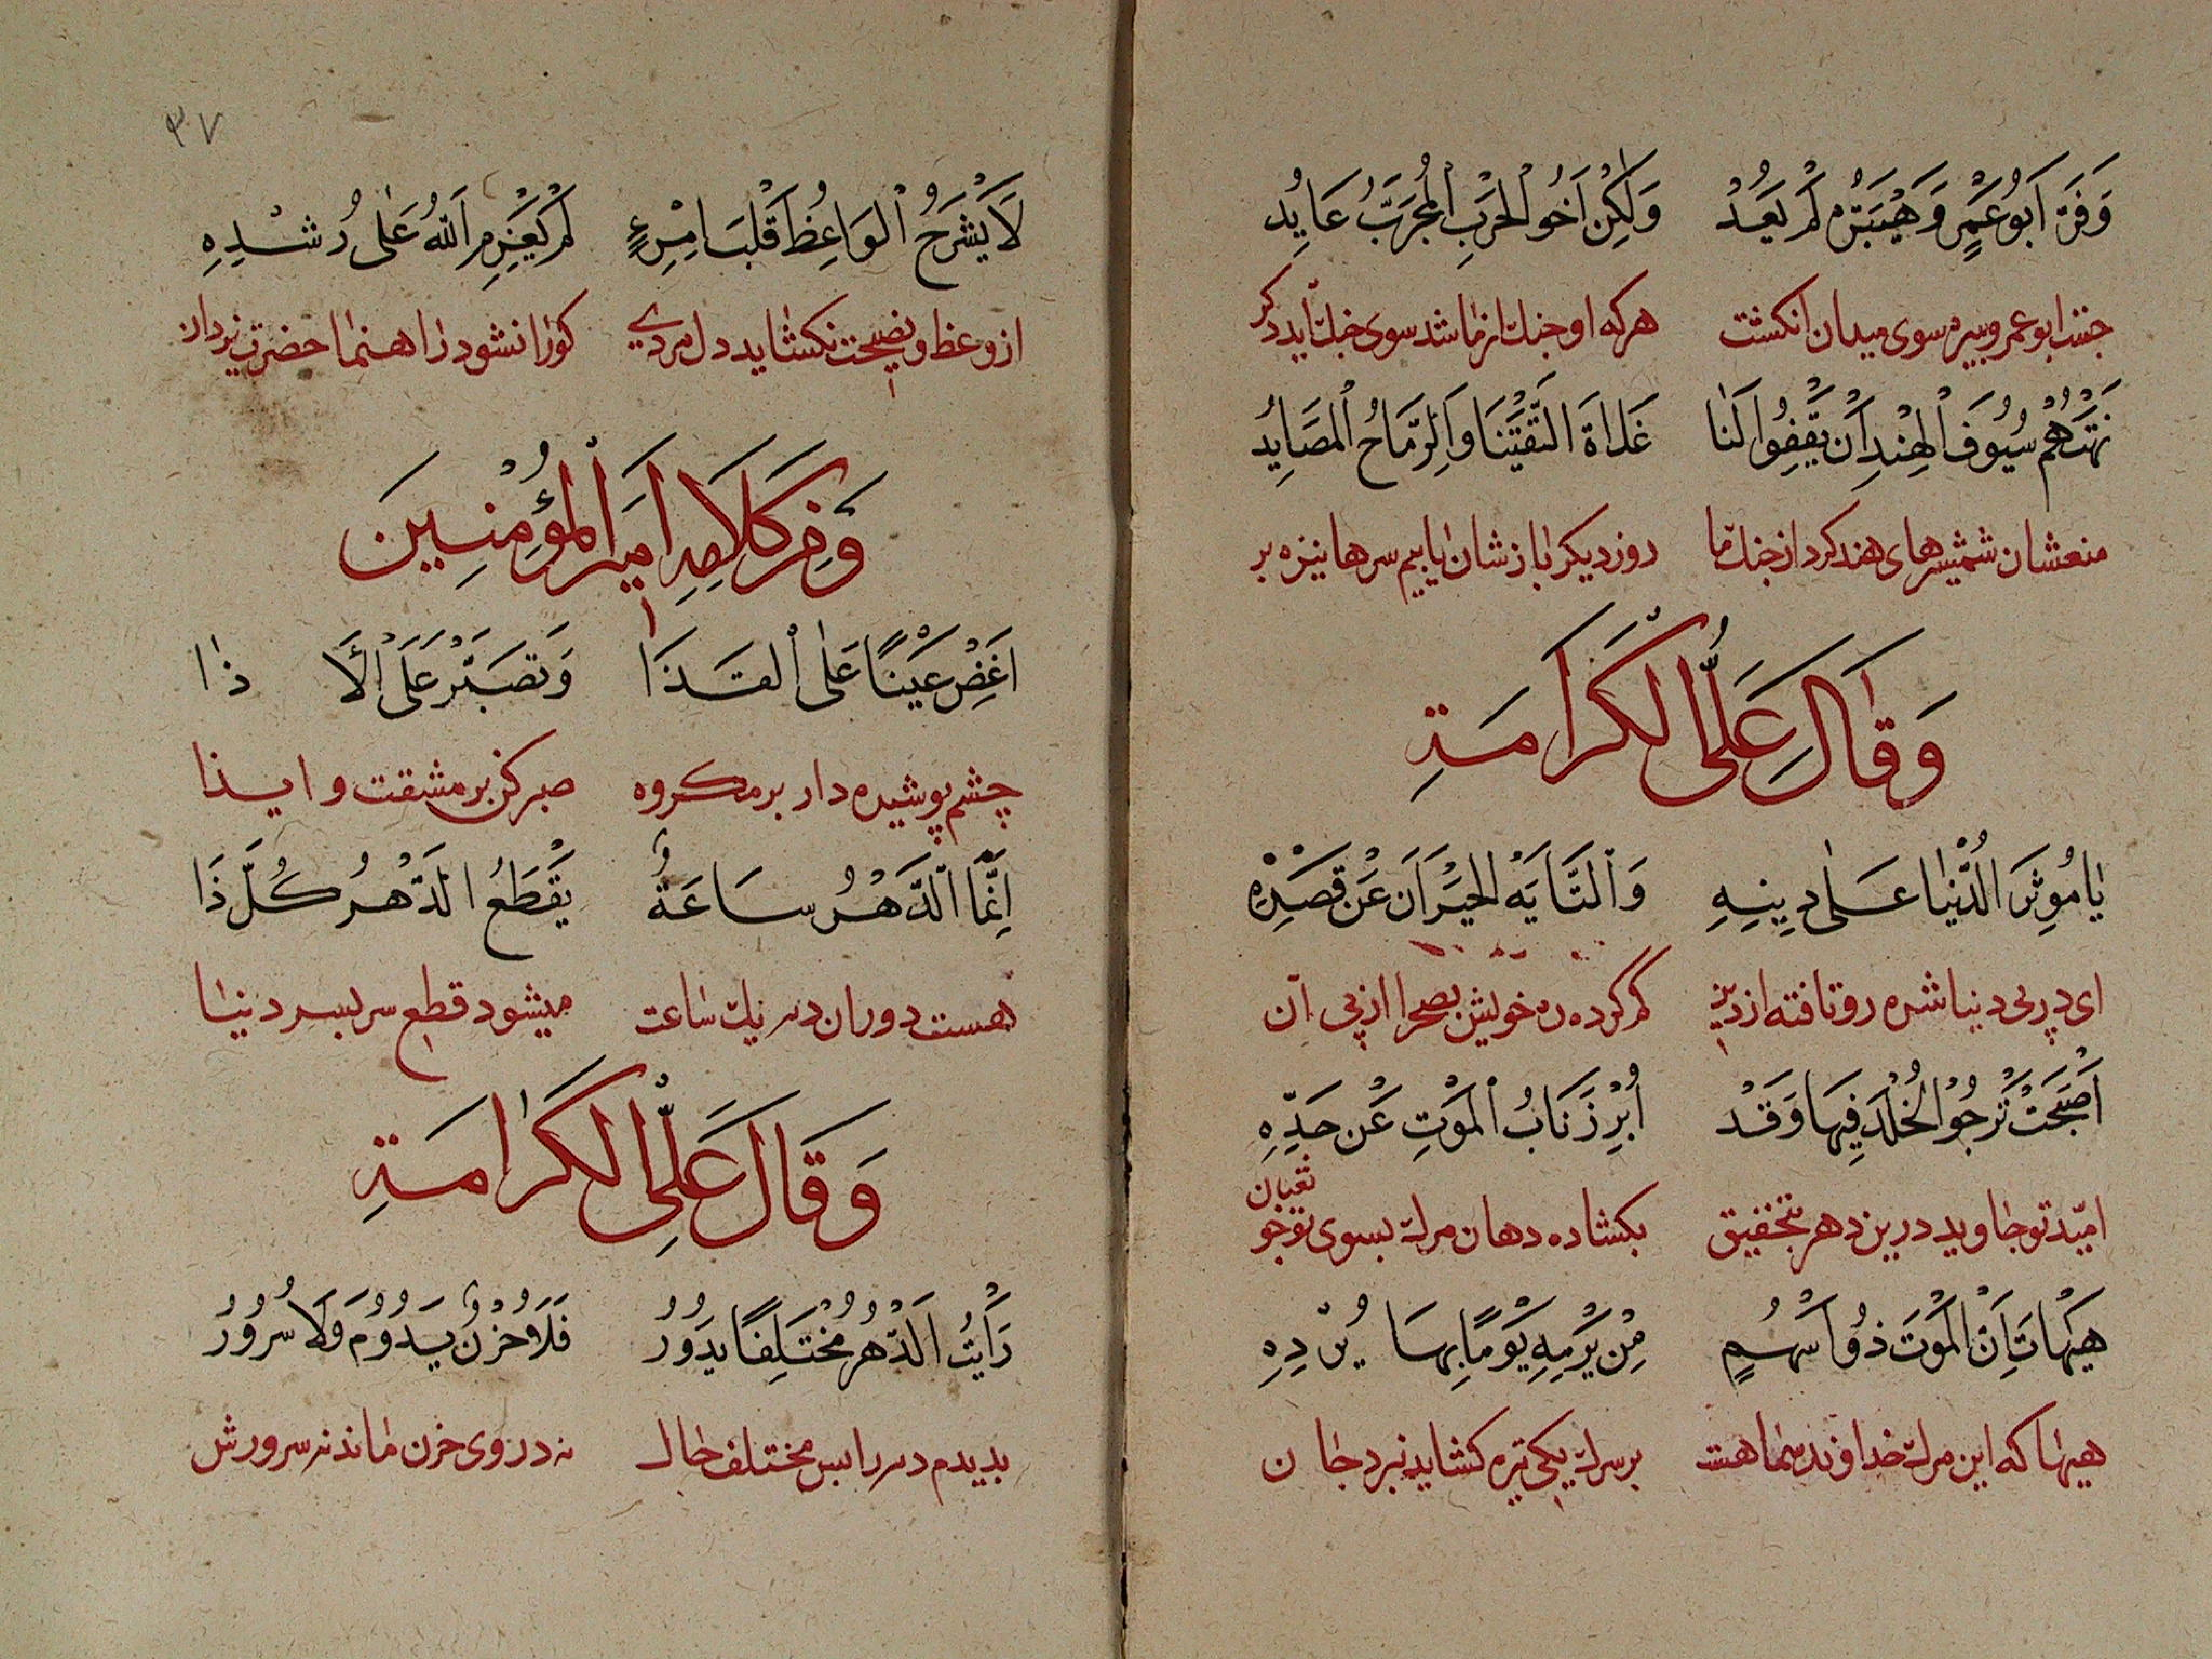 وَفَرَّ اَبُو عَمْرٍو وَهُبَيْرَةُ لَمْ يَعُدْ وَلٰكِنْ اَخُو الْحَرْبِ الْمُجَرَّبُ عَايِدُ
ابوعمرو هبيره سوى ميدان انكشت هركه او جنك ازما شد سوى جنك ايد دكر
نَهَتْهُمْ سُيُوفَ الْهِنْدِ اَنْ يَقِفُوا لَنَا غَدَاةَ الْتَقَيْنَا وَالرِّمَاحُ الْمَصَايِدُ
منعشان شمشيرهاى هند كرد از جنك ما روز ديكر باز شان يابيم سرها نيزه بر
وَقَالَ عَلَىُّ الكَرَامَةِ
يَا مُوثِرَ الدُّنْيَا عَلٰى دِينِهِ وَالتَّايَهَ الْحَيْرَانَ عَنْ قَصْدِهِ
اى در پى دنيا شده رو تافته از دين كم كرده ره خويش بصحرا از پى آن
اَصْبَحْتَ تَرْجُوْ الْخُلْدَ فِيهَا وَقَدْ اُبْرِزَ نَابُ الْمَوْتِ عَنْ حَدِّهِ
اميد تو جاويد درين دهر بتحقيق بكشاده دهان مرك بسوى تو چو ثعبان
هَيْهَاتَ اِنَّ الْمَوْتَ ذُو اَسْهُمٍ مِنْ يَرْمِهِ يَوْمًا بِهَا يُرْدِهِ
هيهات كه اين مرك خداوند سهامست بر سرك يكى تير كشايد نبرد جان
٣٧
لَا يَشْرَحُ الْوَاعِظُ قَلْبَ امْرِءٍ لَمْ يَعْزِمِ اللّٰهُ عَلٰى رُشْدِهِ
از وعظ و نصيحت نكشايد دل مردى كورا نشود راهنما حضرت يزدان
وَمِنْ كَلَامِ اَمِيرِ الْمُؤْمِنِينَ
اَغْضِ عَيْنًا عَلَى الْقَذَا وَتَصَبَّرْ عَلَى الْاَذَا
چشم پوشيده دار بر مكروه صبر كن بر مشقت و ايذا
اِنَّمَا الدَّهْرُ سَاعَةٌ يَقْطَعُ الدَّهْرُ كُلَّ ذَا
هست دوران دهر يك ساعت ميشود قطع سر بسر دنيا
وَقَالَ عَلَىُّ الكَرَامَةِ
رَأَيْتُ الدَّهْرَ مُخْتَلِفًا يَدُوْرُ فَلَا حُزْنٌ يَدُوْمُ وَلَا سُرُورُ
بديدم دهر را بس مختلف حال نه در وى حزن ماند نه سرورش